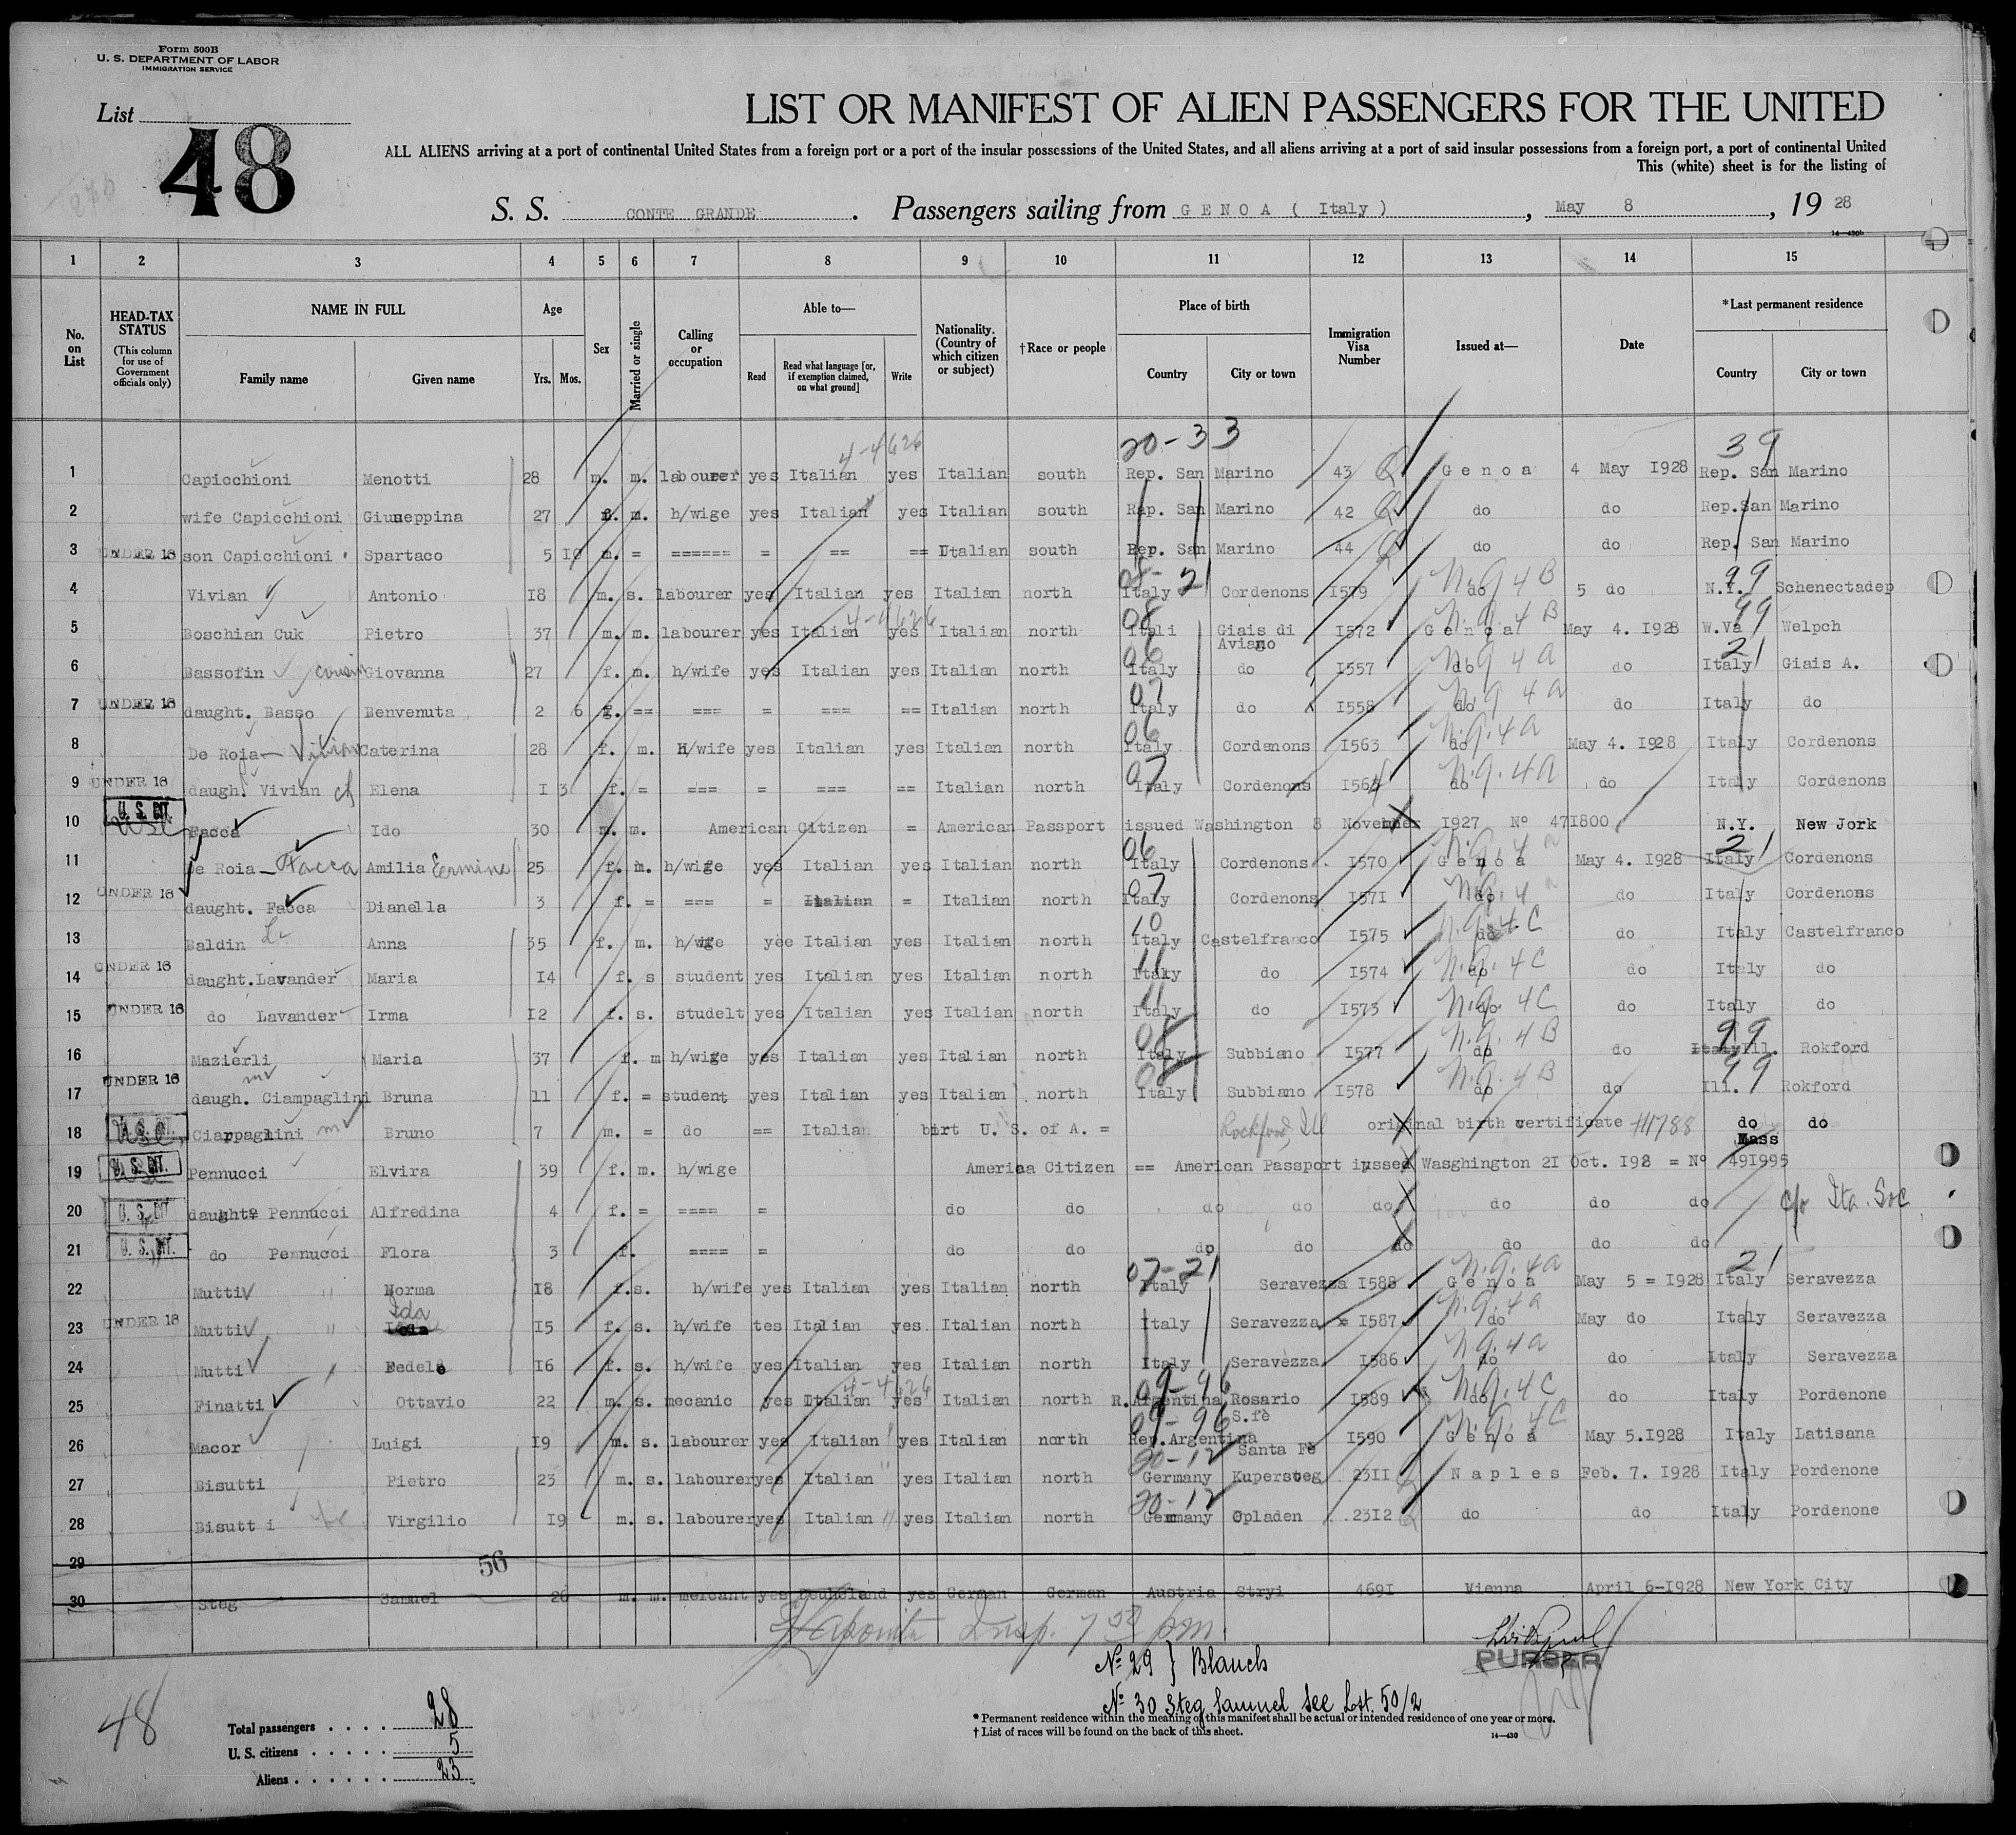 Form 500B
U. S. DEPARTMENT OF LABOR
IMMIGRATION SERVICE
List
48
LIST OR MANIFEST OF ALIEN PASSENGERS FOR THE UNITED
ALL ALIENS arriving at a port of continental United States from a foreign port or a port of the insular possessions of the United States, and all aliens arriving at a port of said insular possessions from a foreign port, a port of continental United
This (white) sheet is for the listing of
S. S. CONTE GRANDE. Passengers sailing from GENOA ( Italy ), May 8, 1928
14—430b
1 2 3 4 5 6 7 8 9 10 11 12 13 14 15
No. on List
HEAD-TAX STATUS (This column for use of Government officials only)
NAME IN FULL Family name Given name
Age Yrs. Mos.
Sex
Married or single
Calling or occupation
Able to— Read Read what language [or, if exemption claimed, on what ground] Write
Nationality. (Country of which citizen or subject)
†Race or people
Place of birth Country City or town
Immigration Visa Number
Issued at—
Date
*Last permanent residence Country City or town
4-4626 20-33 39
1 Capicchioni Menotti 28 m. m. labourer yes Italian yes Italian south Rep. San Marino 43 Genoa 4 May 1928 Rep. San Marino
2 wife Capicchioni Giuseppina 27 f. m. h/wige yes Italian yes Italian south Rep. San Marino 42 do do Rep.San Marino
3 UNDER 16 son Capicchioni Spartaco 5 10 m. = ====== = == == Italian south Rep. San Marino 44 do do Rep. San Marino
08-21 N.Q 4B 99
4 Vivian Antonio 18 m. s. labourer yes Italian yes Italian north Italy Cordenons 1579 do 5 do N.Y. Schenectadep
4-4626 08 N.Q. 4B 99
5 Boschian Cuk Pietro 37 m. m. labourer yes Italian yes Italian north Itali Giais di Aviano 1572 Genoa May 4. 1928 W.Va Welpch
06 N.Q 4a 21
6 Bassofin cousin Giovanna 27 f. m. h/wife yes Italian yes Italian north Italy do 1557 do do Italy Giais A.
07 N.Q 4a
7 UNDER 16 daught. Basso Benvenuta 2 6 g. == === = === == Italian north Italy do 1558 do do Italy do
06 N.Q. 4a
8 De Roia - Vivian Caterina 28 f. m. H/wife yes Italian yes Italian north Italy Cordenons 1563 do May 4. 1928 Italy Cordenons
07 N.Q. 4a
9 UNDER 16 daugh. Vivian Elena 1 3 f. = === = === == Italian north Italy Cordenons 1564 do do Italy Cordenons
U. S. CIT.
10 USC Facca Ido 30 m. m. American Citizen = American Passport issued Washington 8 November 1927 No 471800 N.Y. New Jork
06 N.Q. 4a 21
11 De Roia - Facca Amilia Ermine 25 f. m. h/wige yes Italian yes Italian north Italy Cordenons 1570 Genoa May 4. 1928 Italy Cordenons
07 N.Q. 4a
12 UNDER 16 daught. Facca Dianella 3 f. = === = Italian = Italian north Italy Cordenons 1571 do do Italy Cordenons
10 N.Q. 4C
13 Baldin Anna 35 f. m. h/wge yee Italian yes Italian north Italy Castelfranco 1575 do do Italy Castelfranco
11 N.Q. 4C
14 UNDER 16 daught.Lavander Maria 14 f. s student yes Italian yes Italian north Italy do 1574 do do Italy do
11 N.Q. 4C
15 UNDER 16 do Lavander Irma 12 f. s. studelt yes Italian yes Italian north Italy do 1573 do do Italy do
08 N.Q. 4B 99
16 Mazierli Maria 37 f. m h/wige yes Italian yes Italian north Italy Subbiano 1577 do do Ill. Rokford
08 N.Q. 4B 99
17 UNDER 16 daugh. Ciampaglini Bruna 11 f. = student yes Italian yes Italian north Italy Subbiano 1578 do do Ill. Rokford
18 U. S. CIT. USC Ciappaglini Bruno 7 m. = do == Italian birt U. S. of A. = Rockford, Ill original birth certificate #1788 do do
Mass
19 U. S. CIT. Pennucci Elvira 39 f. m. h/wige America Citizen == American Passport iussed Wasghington 21 Oct. 192 = No 491995
20 U. S. CIT daughte Pennucci Alfredina 4 f. = ==== = do do do do do do do do c/o Ita. Soc
21 U. S. CIT. do Pennucci Flora 3 f. ==== = do do do do do do do do
07-21 N.Q. 4a 21
22 Mutti " Norma 18 f.s. h/wife yes Italian yes Italian north Italy Seravezza 1588 Genoa May 5 = 1928 Italy Seravezza
Ida N.Q. 4a
23 UNDER 16 Mutti " 15 f. s. h/wife tes Italian yes. Italian north Italy Seravezza = 1587 do May do Italy Seravezza
N.Q. 4a
24 Mutti " Fedele 16 f. s. h/wife yes Italian yes Italian north Italy Seravezza 1586 do do Italy Seravezza
4-4626 09-96 N.Q. 4C
25 Finatti Ottavio 22 m. s. mecanic yes Italian yes Italian north R.Argentina Rosario S.fè 1589 do do Italy Pordenone
09-96 N.Q. 4C
26 Macor Luigi 19 m. s. labourer yes Italian " yes Italian north Rep.Argentina Santa Fè 1590 Genoa May 5.1928 Italy Latisana
20-12
27 Bisutti Pietro 23 m. s. labourer yes Italian " yes Italian north Germany Kupersteg 2311 Naples Feb. 7. 1928 Italy Pordenone
20-12
28 Bisutti Virgilio 19 m. s. labourer yes Italian " yes Italian north Germany Opladen 2312 do do Italy Pordenone
29 56
30 Steg Samuel 26 m. m. mercant yes yes German German Austria Stryi 4691 Wienna April 6-1928 New York City
Insp. 7 30 pm
PURSER
No 29 } Blanch
No 30 Steg Samuel see List. 50/2
48
Total passengers . . . . 28
U. S. citizens . . . . . 5
Aliens . . . . . . 23
* Permanent residence within the meaning of this manifest shall be actual or intended residence of one year or more.
† List of races will be found on the back of this sheet.
14—430